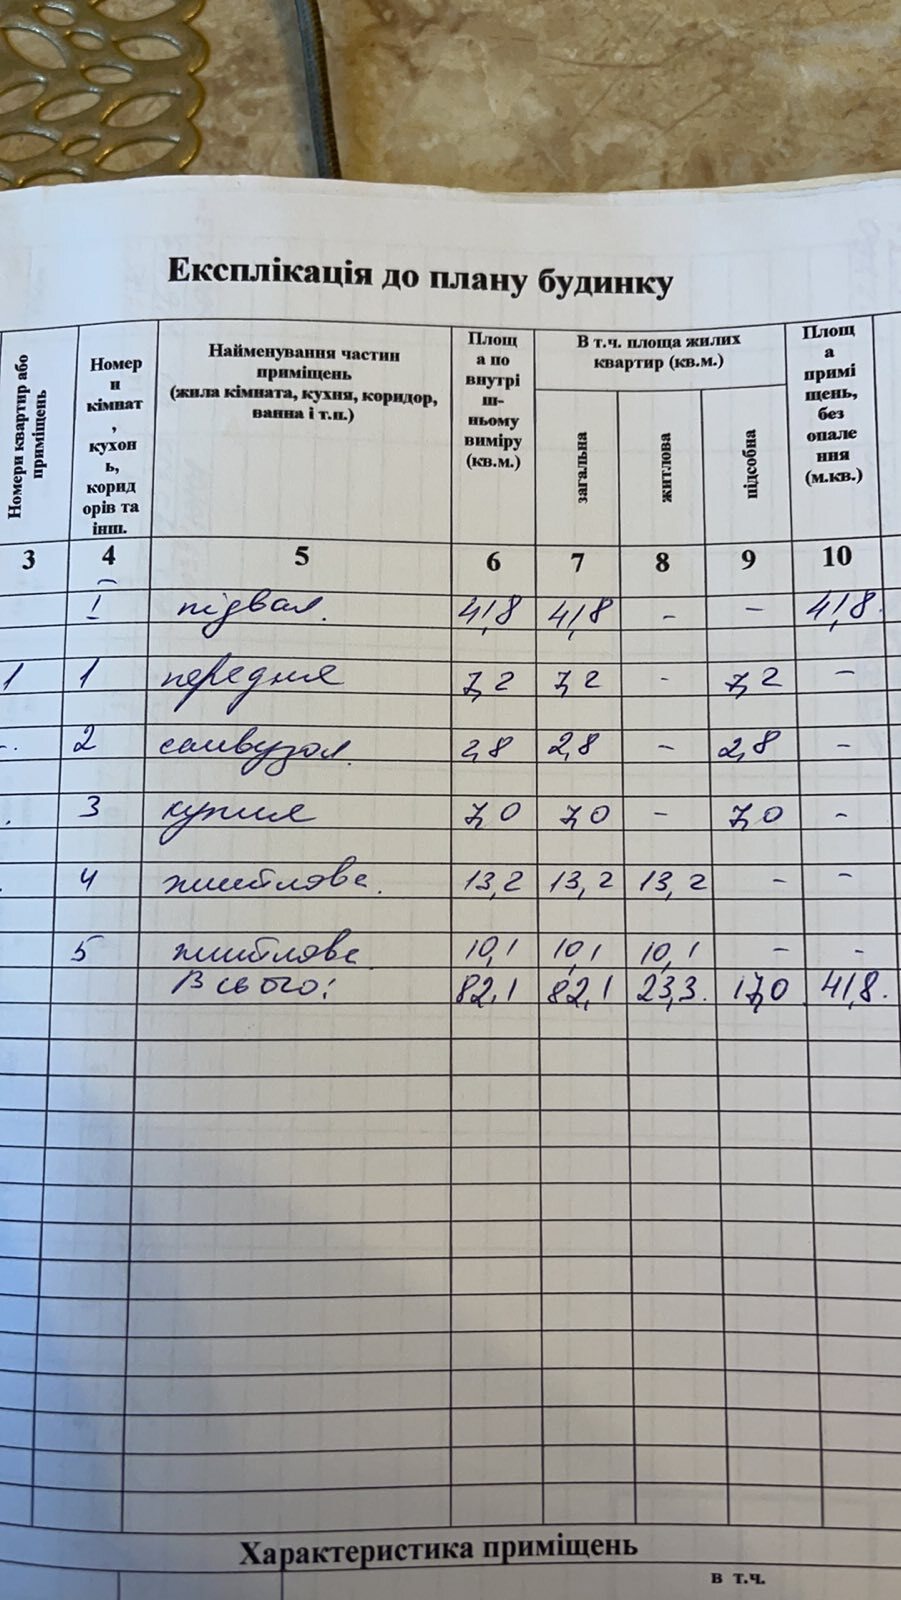 Експлікація до плану будинку
Номери квартир або приміщень
Номер и кімнат , кухон ь, корид орів та інш.
Найменування частин приміщень (жила кімната, кухня, коридор, ванна і т.п.)
Площ а по внутрі ш- ньому виміру (кв.м.)
В т.ч. площа жилих квартир (кв.м.)
загальна
житлова
підсобна
Площ а примі щень, без опале ння (м.кв.)
3 4 5 6 7 8 9 10
I підвал. 41,8 41,8 - - 41,8.
1 1 передня 7,2 7,2 - 7,2 -
-. 2 санвузол. 2,8 2,8 - 2,8 -
. 3 кухня 7,0 7,0 - 7,0 -
. 4 житлова. 13,2 13,2 13,2 - -
5 житлова 10,1 10,1 10,1 - -
Всього: 82,1 82,1 23,3. 17,0 41,8.
Характеристика приміщень
в т.ч.